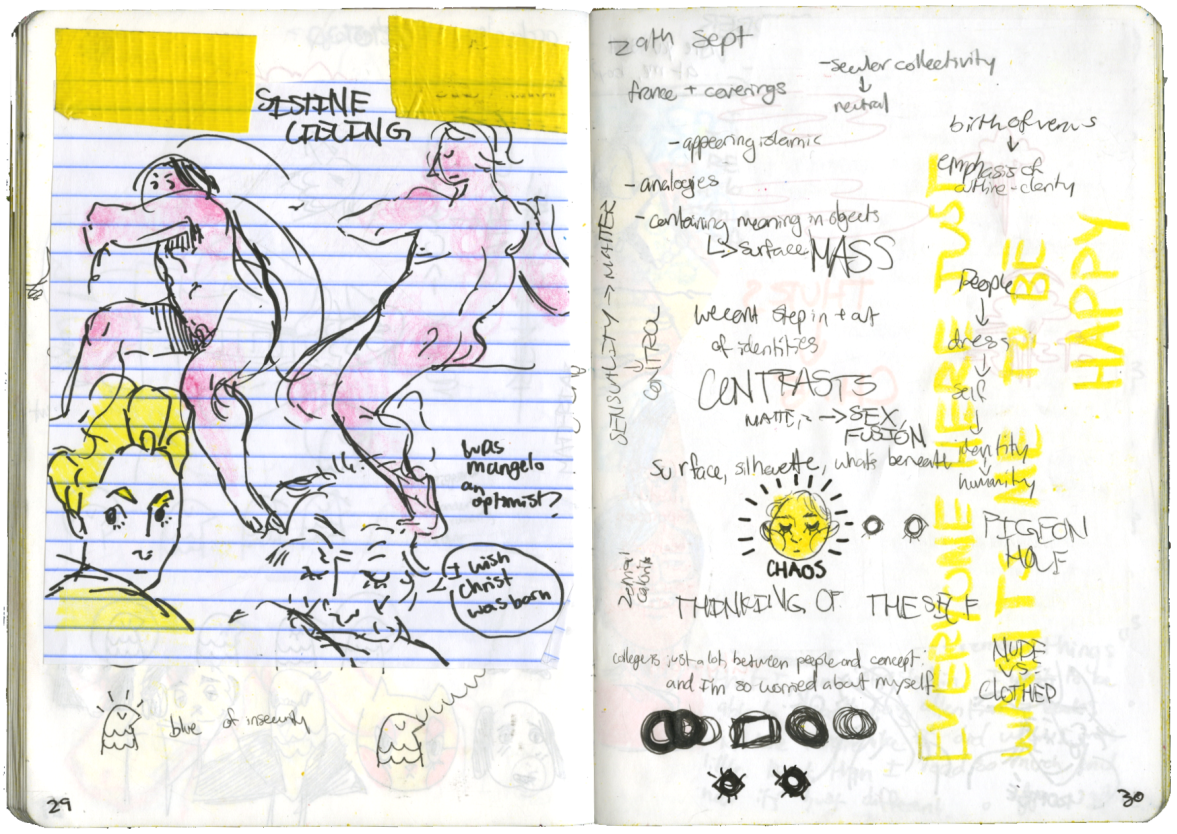 SISTINE
was
mangelo
an
optimist?
I wish
Christ
was born
blue of insecurity
29
29th Sept
france + coverings
- secular collectivity
↓
neutral
- appearing islamic
- analogies
- containing meaning in objects
↳ surface MASS
birth of venus
↓
emphasis of
outline - clarity
SENSUALITY → MATTER
CONTROL
we cant step in + out
of identities
CONTRASTS
MATTER → SEX,
FUSION
surface, silhouette, whats beneath
People
↓
dress
↓
self
↓
identity
↓
humanity
CHAOS
PIGEON
HOLE
THINKING OF THESE
college is just a lot, between people and concept.
and I'm so worried about myself
NUDE
VS
CLOTHED
EVERYONE HERE JUST
WANTS ME TO BE
HAPPY
30